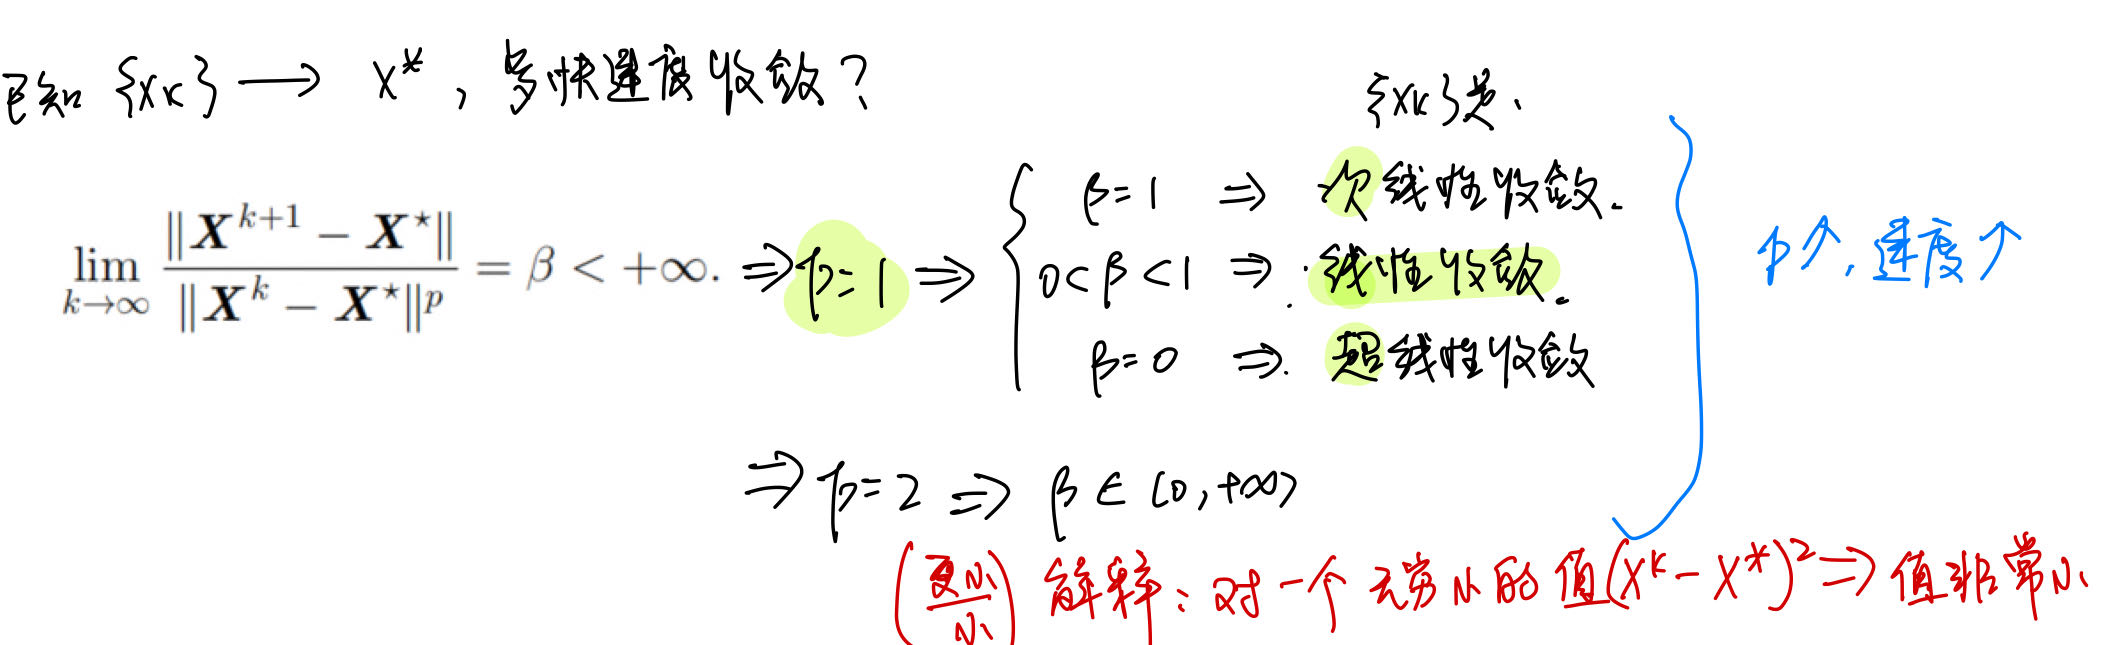 已知 {xk} → x*, 多快速度收敛?
{xk}是.
lim k→∞ ‖X^{k+1} − X^⋆‖ / ‖X^k − X^⋆‖^p = β < +∞. ⇒ p=1 ⇒
β=1 ⇒ 次线性收敛.
0<β<1 ⇒ 线性收敛.
β=0 ⇒ 超线性收敛
p↑, 速度↑
⇒ p=2 ⇒ β∈[0,+∞)
(更小/小) 解释: 对一个无穷小的值(x^k-x*)^2 ⇒ 值非常小